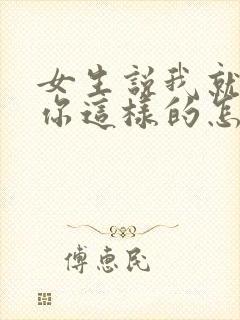 女生說我就
你這樣的怎
傅惠民